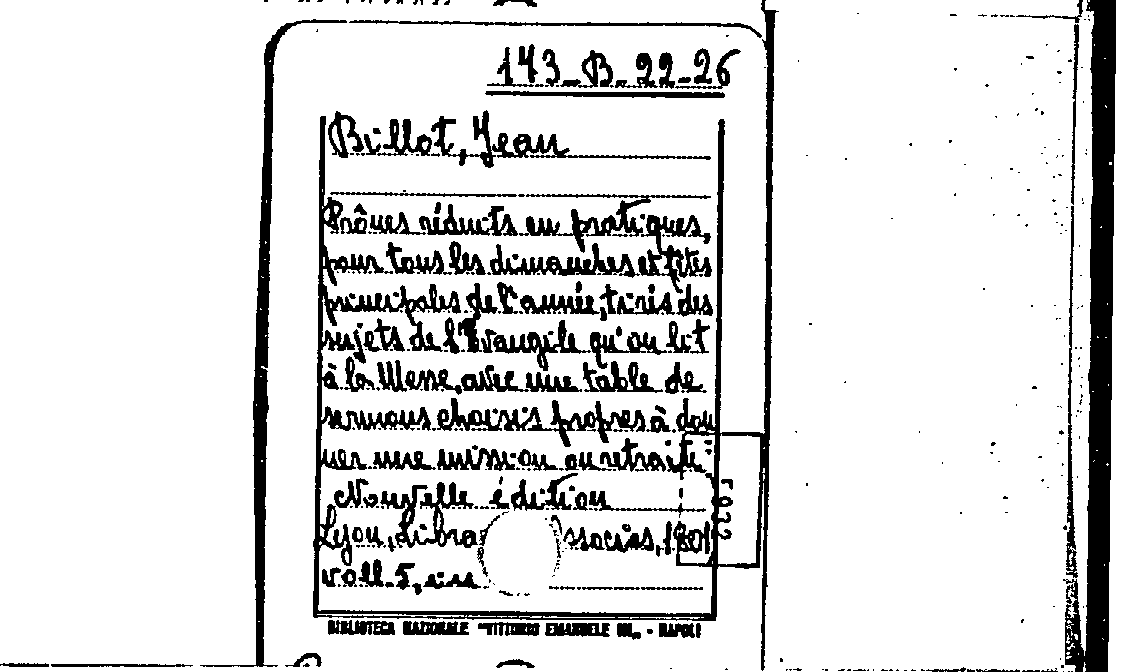 143_B_22-26
Billot, Jean
Prônes réduits en pratiques,
pour tous les dimanches et fêtes
principales de l'année, tirés des
sujets de l'Evangile qu'on lit
à la Messe, avec une table de
sermons choisis propres à don
ner une mission ou retraite
Nouvelle édition
Lyon, Libra ssociés, 1801
voll. 5, in
BIBLIOTECA NAZIONALE "VITTORIO EMANUELE III„ - NAPOLI